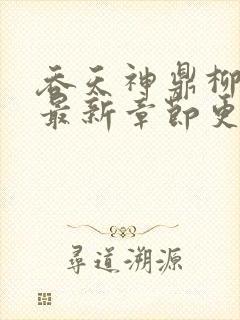 吞天神鼎柳
最新章節更
尋道溯源